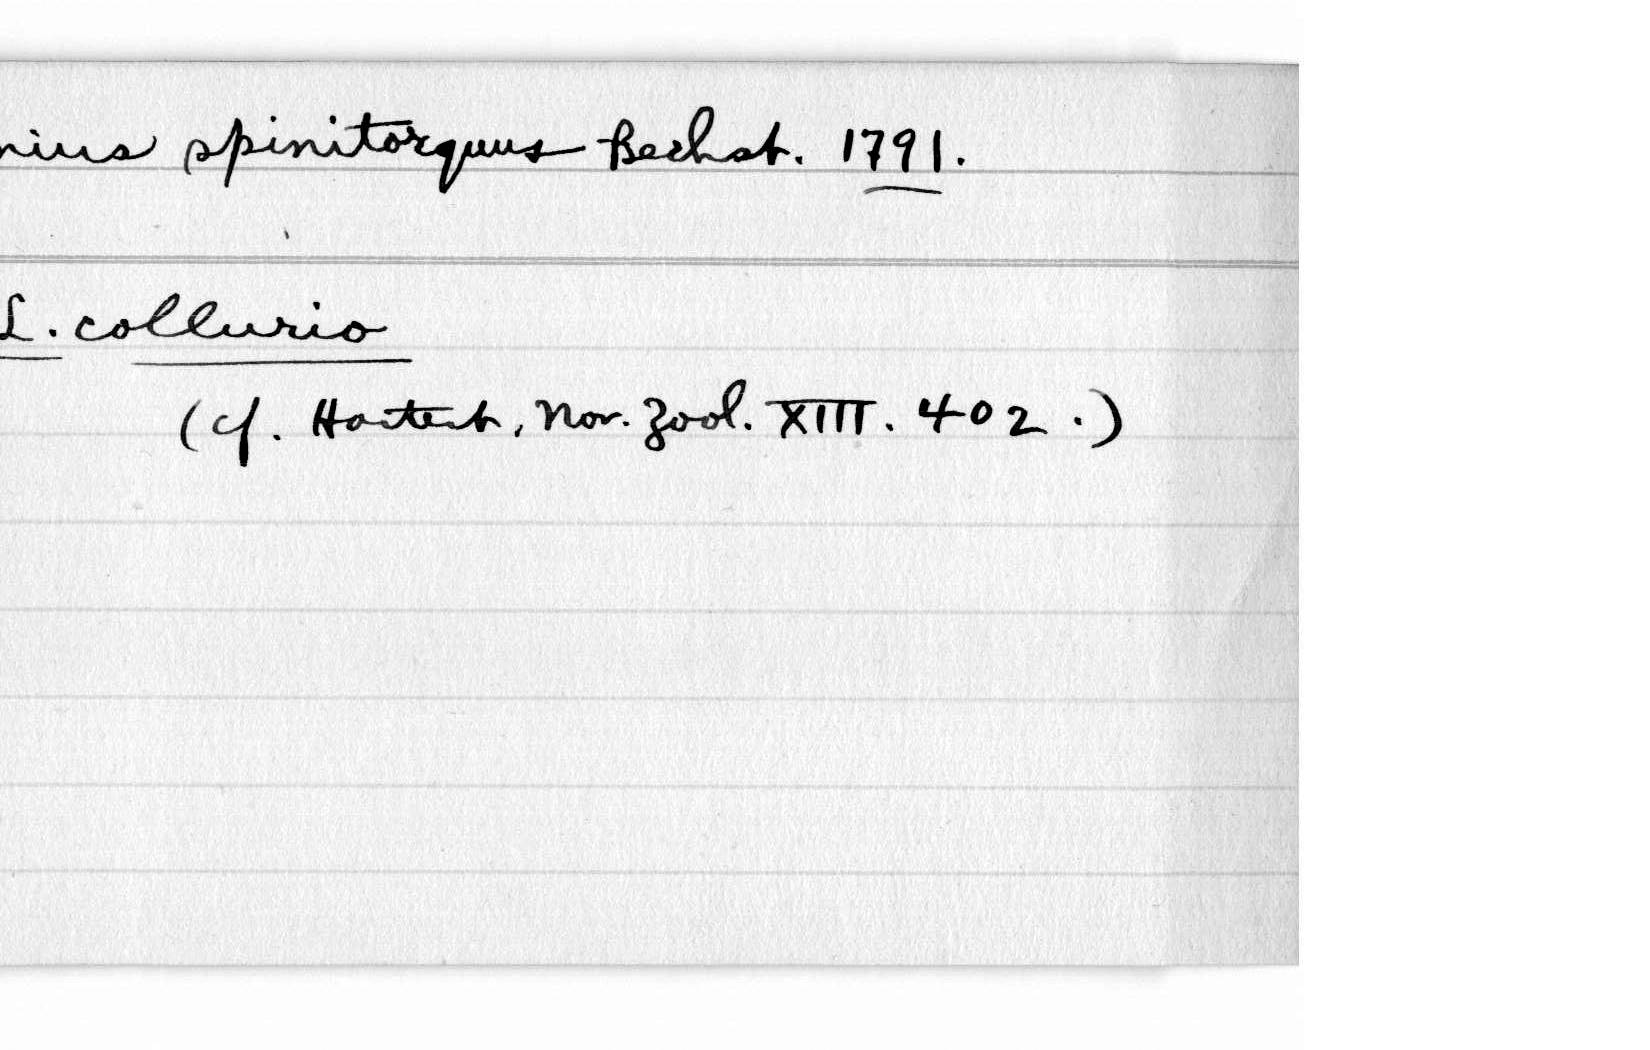 nius spinitorquus Bechst. 1791.
L. collurio
(cf. Hartert, Nov. Zool. XIII. 402.)